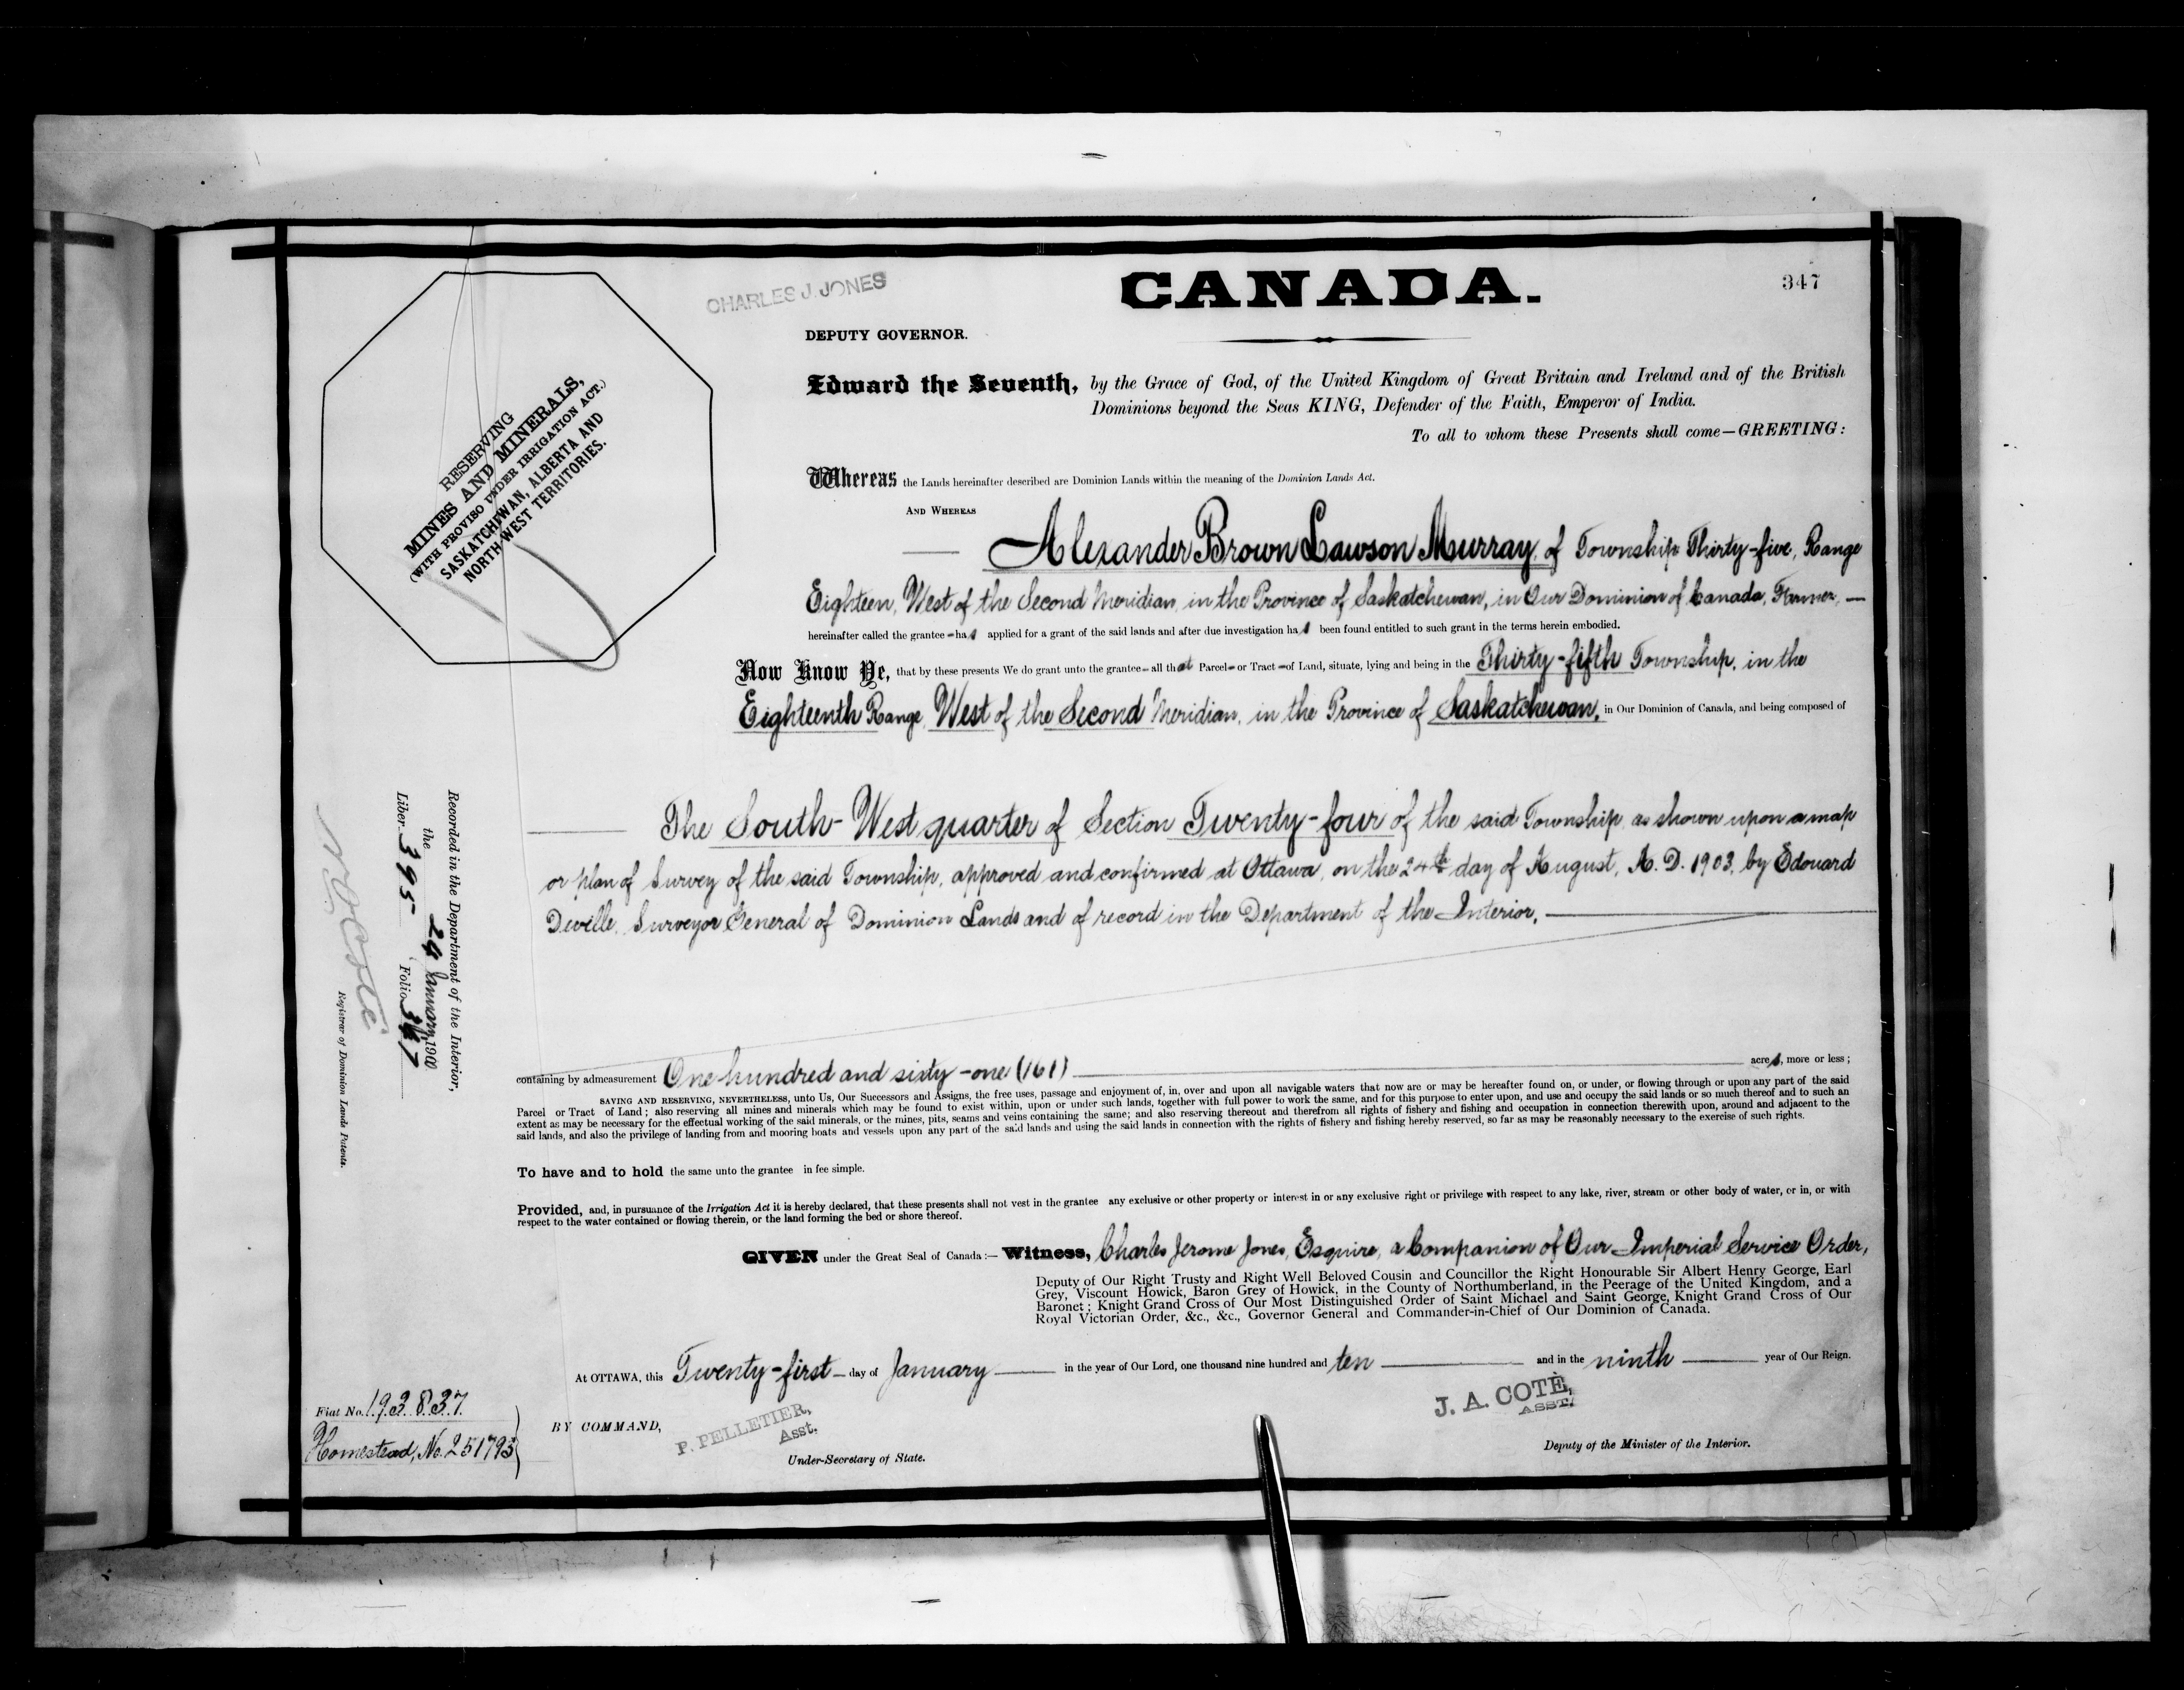 CANADA.
347
CHARLES J. JONES
DEPUTY GOVERNOR.
RESERVING
MINES AND MINERALS,
(WITH PROVISO UNDER IRRIGATION ACT.)
SASKATCHEWAN, ALBERTA AND
NORTH WEST TERRITORIES.
Edward the Seventh, by the Grace of God, of the United Kingdom of Great Britain and Ireland and of the British
Dominions beyond the Seas KING, Defender of the Faith, Emperor of India.
To all to whom these Presents shall come—GREETING:
Whereas the Lands hereinafter described are Dominion Lands within the meaning of the Dominion Lands Act.
AND WHEREAS
Alexander Brown Lawson Murray, of Township Thirty-five, Range
Eighteen, West of the Second Meridian, in the Province of Saskatchewan, in Our Dominion of Canada, Farmer, —
hereinafter called the grantee – has applied for a grant of the said lands and after due investigation has been found entitled to such grant in the terms herein embodied.
Now Know Ye, that by these presents We do grant unto the grantee – all that Parcel – or Tract – of Land, situate, lying and being in the Thirty-fifth Township, in the
Eighteenth Range, West of the Second Meridian, in the Province of Saskatchewan, in Our Dominion of Canada, and being composed of
The South-West quarter of Section Twenty-four of the said Township, as shown upon a map
or plan of Survey of the said Township, approved and confirmed at Ottawa, on the 24th day of August, A.D. 1903, by Edouard
Deville, Surveyor General of Dominion Lands and of record in the Department of the Interior,
containing by admeasurement One hundred and sixty-one (161) acres, more or less;
SAVING AND RESERVING, NEVERTHELESS, unto Us, Our Successors and Assigns, the free uses, passage and enjoyment of, in, over and upon all navigable waters that now are or may be hereafter found on, or under, or flowing through or upon any part of the said
Parcel or Tract of Land; also reserving all mines and minerals which may be found to exist within, upon or under such lands, together with full power to work the same, and for this purpose to enter upon, and use and occupy the said lands or so much thereof and to such an
extent as may be necessary for the effectual working of the said minerals, or the mines, pits, seams and veins containing the same; and also reserving thereout and therefrom all rights of fishery and fishing and occupation in connection therewith upon, around and adjacent to the
said lands, and also the privilege of landing from and mooring boats and vessels upon any part of the said lands and using the said lands in connection with the rights of fishery and fishing hereby reserved, so far as may be reasonably necessary to the exercise of such rights.
To have and to hold the same unto the grantee in fee simple.
Provided, and, in pursuance of the Irrigation Act it is hereby declared, that these presents shall not vest in the grantee any exclusive or other property or interest in or any exclusive right or privilege with respect to any lake, river, stream or other body of water, or in, or with
respect to the water contained or flowing therein, or the land forming the bed or shore thereof.
GIVEN under the Great Seal of Canada:— Witness, Charles Jerome Jones, Esquire, a Companion of Our Imperial Service Order,
Deputy of Our Right Trusty and Right Well Beloved Cousin and Councillor the Right Honourable Sir Albert Henry George, Earl
Grey, Viscount Howick, Baron Grey of Howick, in the County of Northumberland, in the Peerage of the United Kingdom, and a
Baronet; Knight Grand Cross of Our Most Distinguished Order of Saint Michael and Saint George, Knight Grand Cross of Our
Royal Victorian Order, &c., &c., Governor General and Commander-in-Chief of Our Dominion of Canada.
At OTTAWA, this Twenty-first day of January in the year of Our Lord, one thousand nine hundred and ten and in the ninth year of Our Reign.
BY COMMAND,
P. PELLETIER,
Asst.
Under-Secretary of State.
J. A. COTÉ,
ASST.
Deputy of the Minister of the Interior.
Fiat No. 193837
Homestead, No. 251793
Recorded in the Department of the Interior,
the 24 January 190
Liber 395 Folio 347
N. O. Coté
Registrar of Dominion Lands Patents.